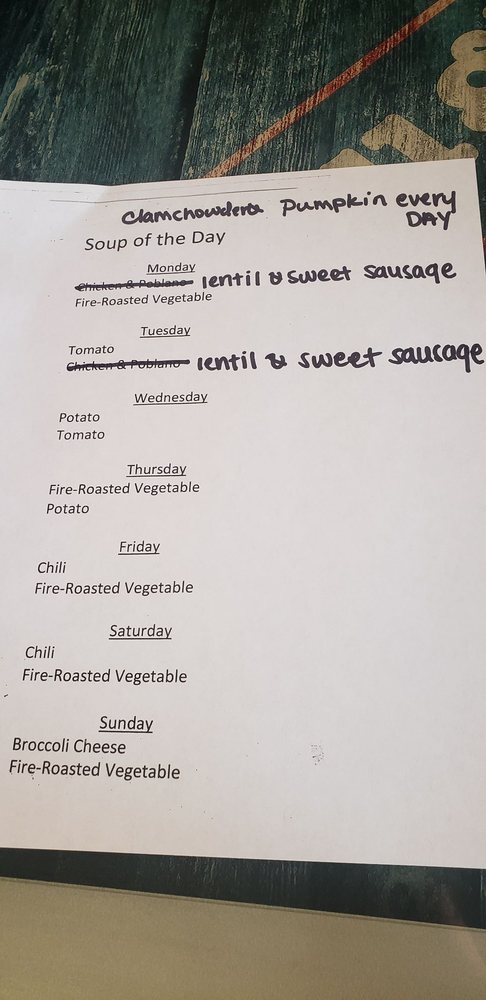 Clamchowder & Pumpkin every
DAY
Soup of the Day
Monday
Chicken & Poblano lentil & sweet sausage
Fire-Roasted Vegetable
Tuesday
Tomato
Chicken & Poblano lentil & sweet sausage
Wednesday
Potato
Tomato
Thursday
Fire-Roasted Vegetable
Potato
Friday
Chili
Fire-Roasted Vegetable
Saturday
Chili
Fire-Roasted Vegetable
Sunday
Broccoli Cheese
Fire-Roasted Vegetable